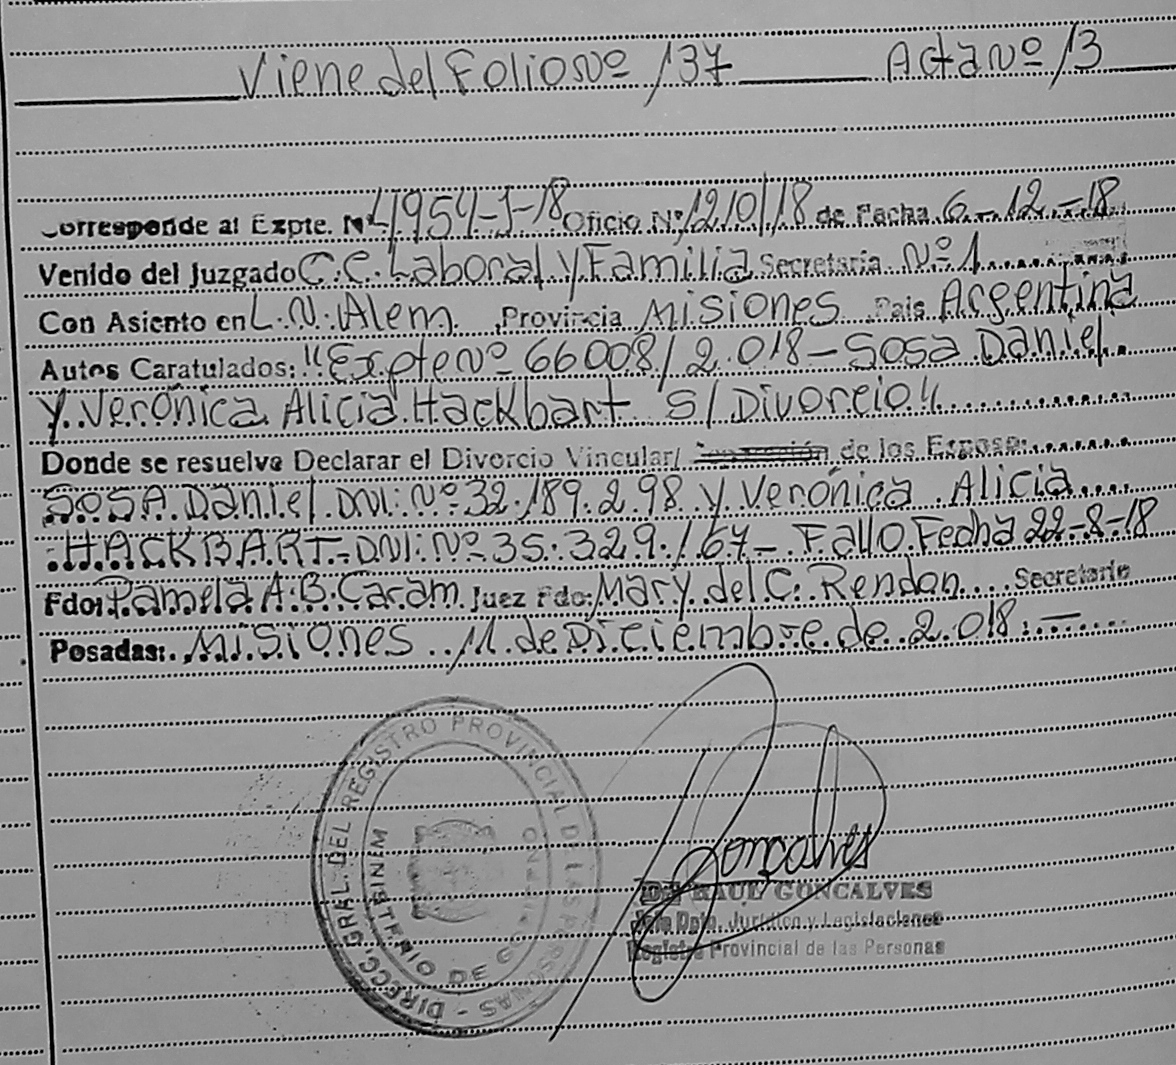 Viene del Folio Nº 137 Acta Nº 13
Corresponde al Expte. Nº 4954-J-18 Oficio Nº 1210/18 de Fecha 6-12-18
Venido del Juzgado C.C. Laboral y Familia Secretaria Nº 1
Con Asiento en L.N. Alem Provincia Misiones Pais Argentina
Autos Caratulados: "Expte Nº 66008/2.018 - Sosa Daniel
y Verónica Alicia Hackbart S/ Divorcio"
Donde se resuelva Declarar el Divorcio Vincular/ Separación de los Esposo:
SOSA Daniel DNI: Nº 32.189.298 y Verónica Alicia
HACKBART - DNI: Nº 35.329.167 - Fallo Fecha 22-8-18
Fdo: Pamela A.B. Caram Juez Fdo: Mary del C. Rendon Secretario
Posadas: Misiones 11 de Diciembre de 2.018.-
DIRECC. GRAL. DEL REGISTRO PROVINCIAL DE LAS PERSONAS -
MINISTERIO DE GOBIERNO
Gonçalves
Dr RAUL GONCALVES
Jefe Dpto. Jurídico y Legislaciones
Registro Provincial de las Personas